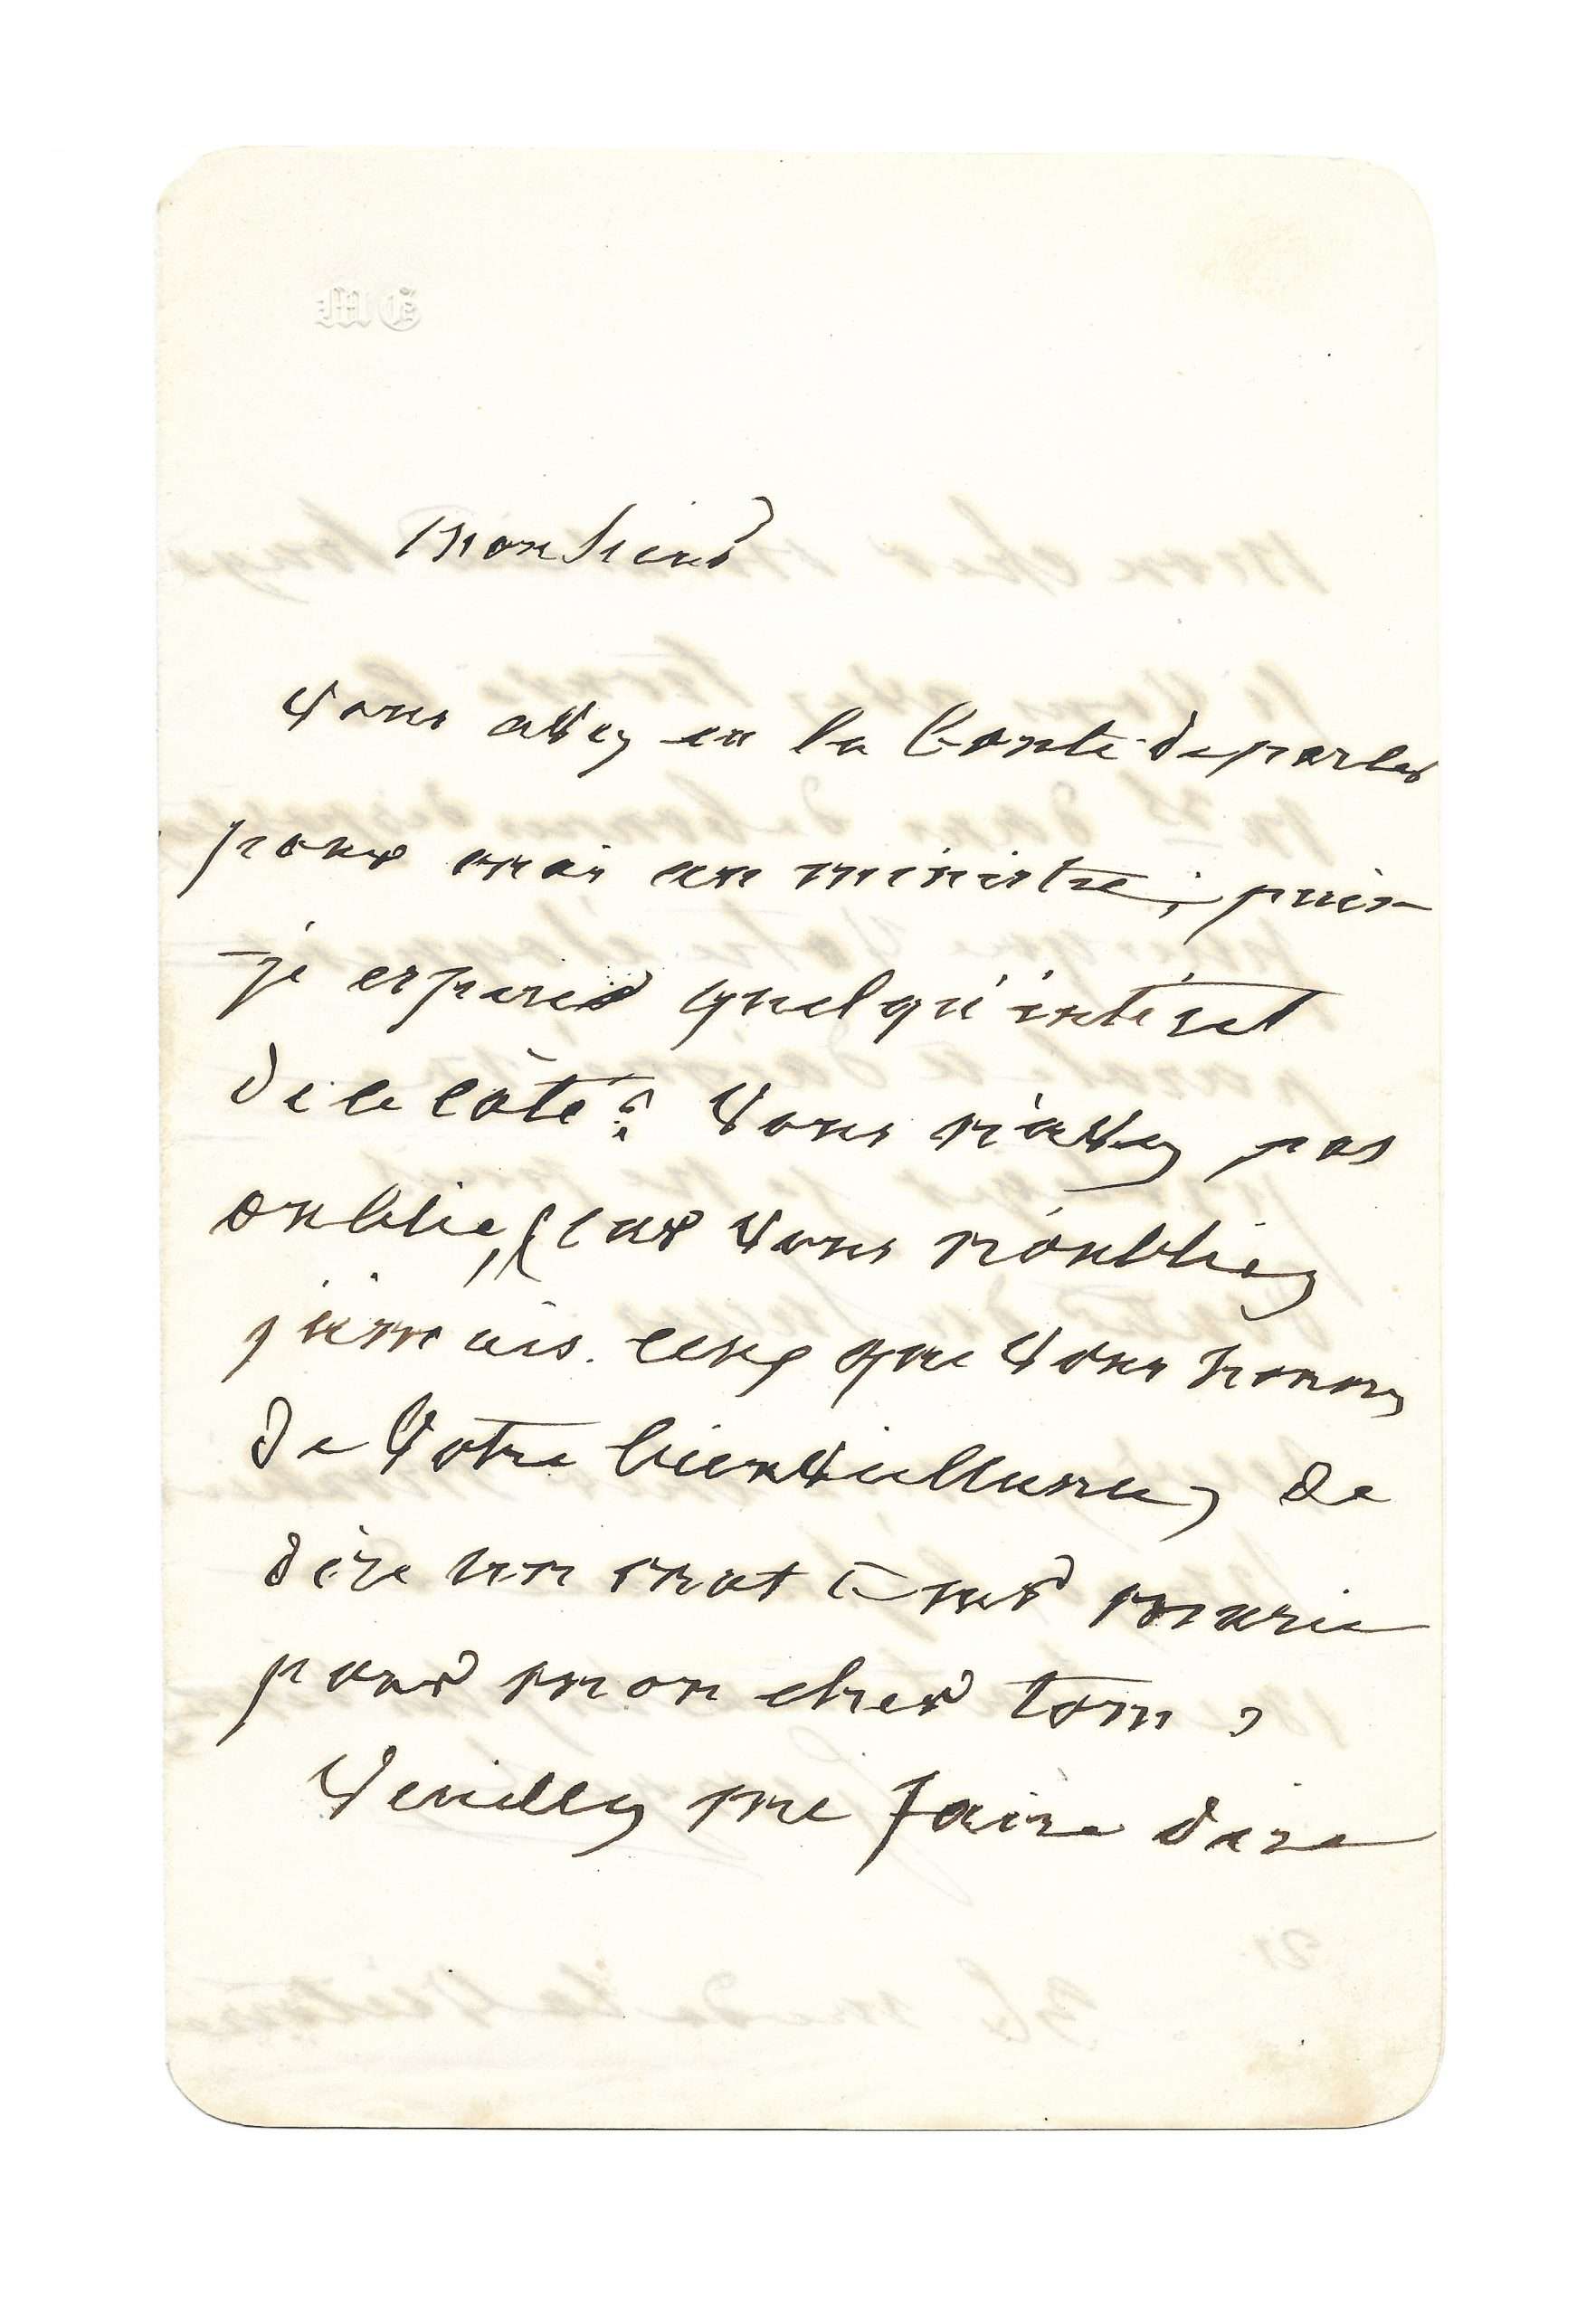 Monsieur
Vous avez eu la bonté de parler
pour moi au ministre; puis-
-je espérer quelqu'intérêt
de ce côté? Vous n'avez pas
oublié, (car vous n'oubliez
jamais ceux que vous honorez
de votre bienveillance, de
dire un mot à
pour mon cher
Veuillez me faire dire